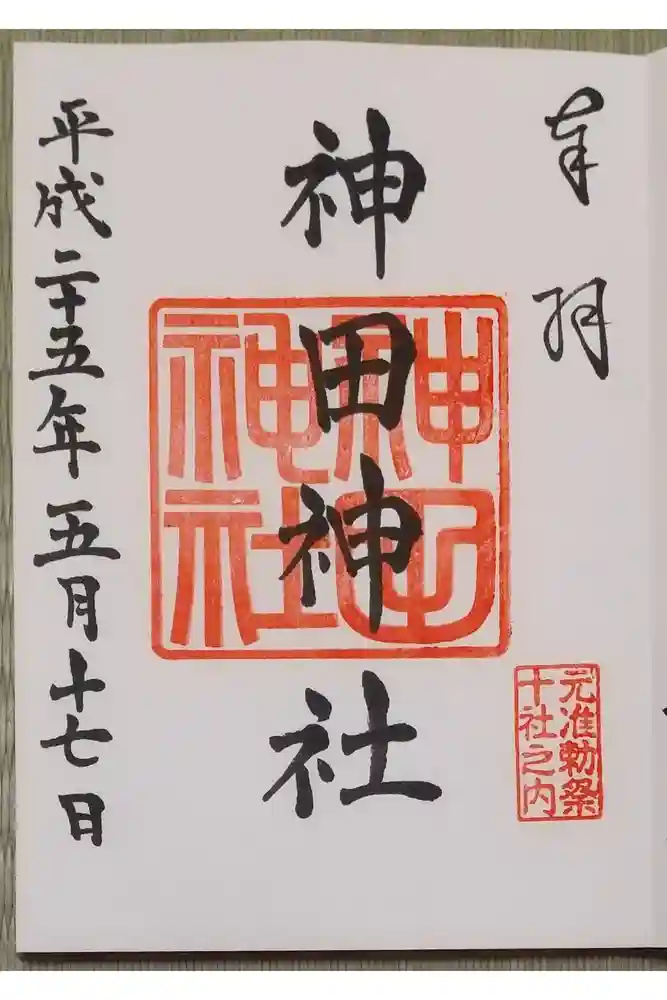 奉拝
元准勅祭
十社之内
神田神社
平成二十五年五月十七日